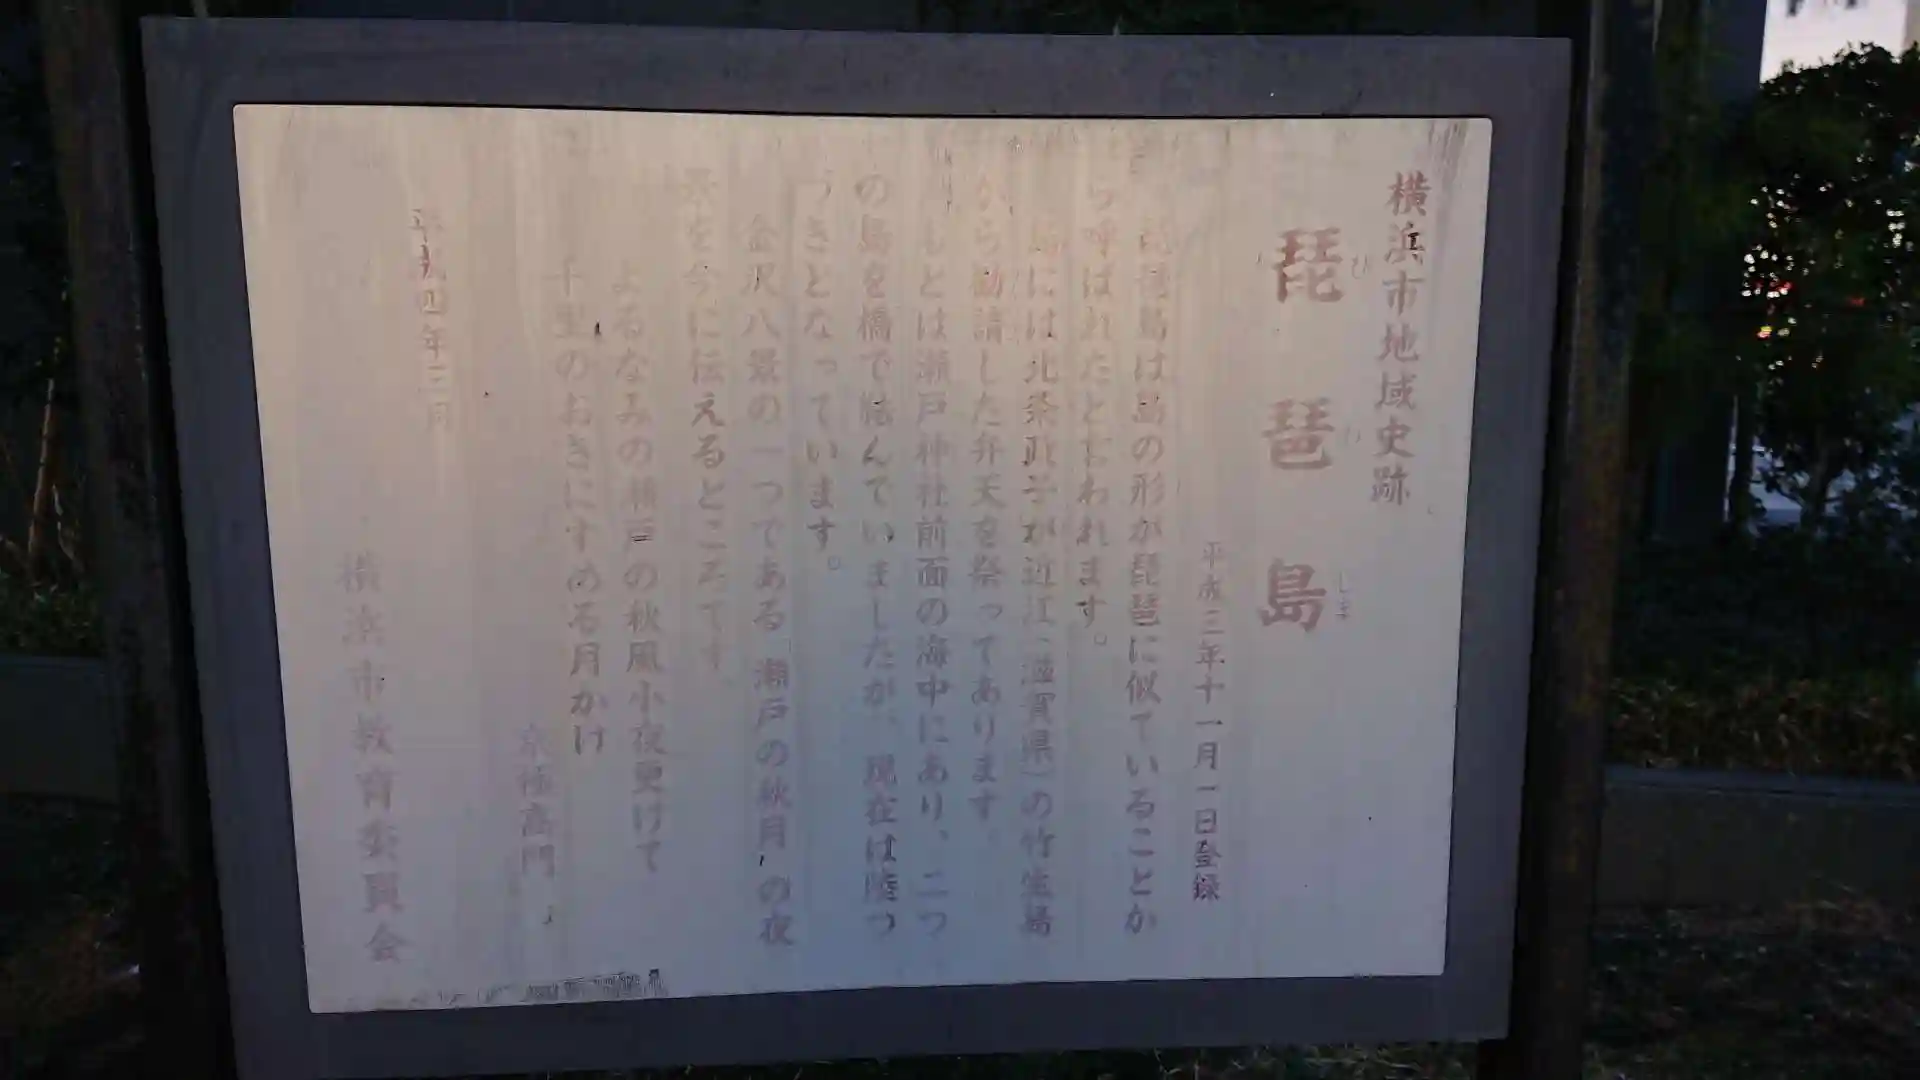 横浜市地域史跡
琵琶島
びわしま
平成三年十一月一日登録
琵琶島は島の形が琵琶に似ていることか
ら呼ばれたと言われます。
島には北条政子が近江(滋賀県)の竹生島
から勧請した弁天を祭ってあります。
もとは瀬戸神社前面の海中にあり、二つ
の島を橋で結んでいましたが、現在は陸つ
づきとなっています。
金沢八景の一つである「瀬戸の秋月」の夜
景を今に伝えるところです。
よるなみの瀬戸の秋風小夜更けて
千里のおきにすめる月かけ
京極高門
平成四年三月
横浜市教育委員会